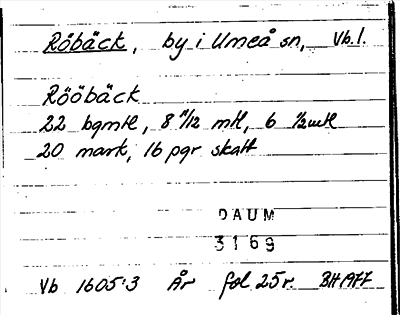 Röbäck, by i Umeå sn, Vb.l.
Rööbäck
22 bgmtl, 8 11/12 mtl, 6 1/2 mtl
20 mark, 16 pgr skatt
DAUM
3169
Vb 1605:3 År fol 25r. BH 1977